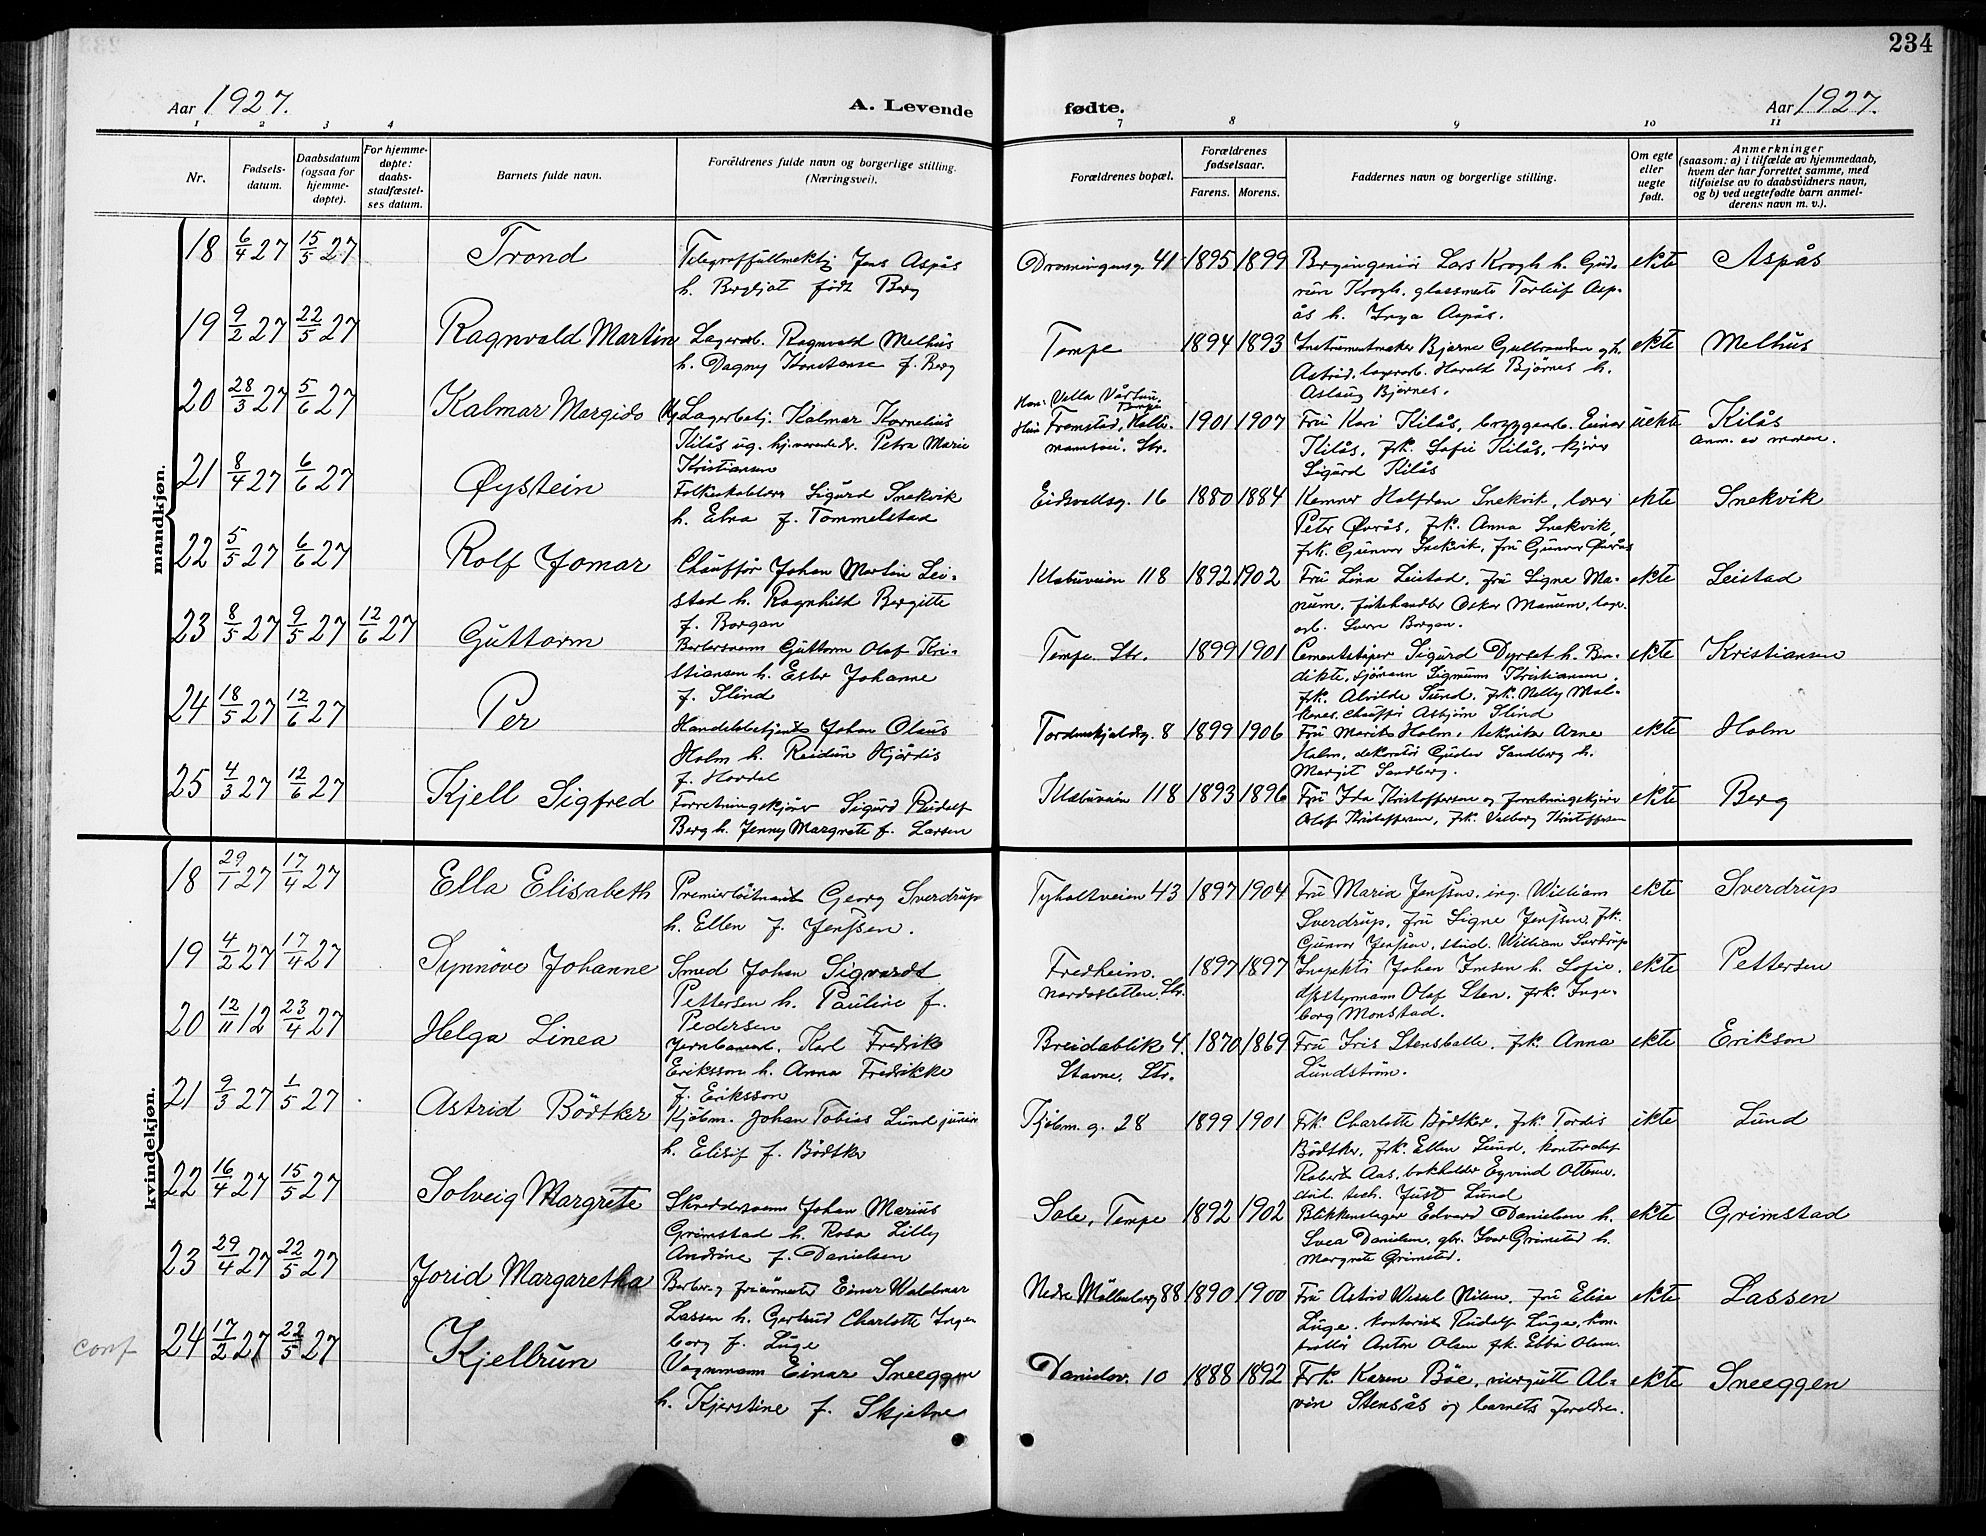 234
Aar 1927. A. Levende fødte. Aar 1927.
1 2 3 4 7 8 9 10 11
Nr.
Fødsels-
datum.
Daabsdatum
(ogsaa for
hjemme-
døpte).
For hjemme-
døpte:
daabs-
stadfæstel-
ses datum.
Barnets fulde navn.
Forældrenes fulde navn og borgerlige stilling.
(Næringsvei).
Forældrenes bopæl.
Forældrenes
fødselsaar.
Farens. Morens.
Faddernes navn og borgerlige stilling.
Om egte
eller
uegte
født.
Anmerkninger
(saasom: a) i tilfælde av hjemmedaab,
hvem der har forrettet samme, med
tilføielse av to daabsvidners navn,
og b) ved uegtefødte barn anmel-
derens navn m. v.).
mandkjøn.
18 6/4 27 15/5 27 Trond
Telegraffullmektig Jens Aspås
h. Bergljot født Berg
Dronningensg. 41 1895 1899
Bergingeniør Lars Krogh h. Gud-
run Krogh, glassmester Torleif Asp-
ås h. Inga Aspås.
ekte Aspås
19 9/2 27 22/5 27 Ragnvald Martin
Lagerarb. Ragnvald Melhus
h. Dagny Konstanse f. Berg
Tempe 1894 1893
Instrumentmaker Bjarne Gulbrandsen og h.
Astrid, lagerarb. Harald Bjørnes h.
Aslaug Bjørnes.
ekte Melhus
20 28/3 27 5/6 27 Kalmar Margido
Ug. Lagerbetj. Kalmar Kornelius
Kilås ug. hj.værende dr. Petra Marie
Kristiansen
Han: Villa Vårtun,
Berge
Hun Fremstad,
Str. 1901 1907
Fru Kari Kilås, bryggearb. Einar
Kilås, frk. Sofie Kilås, kjører
Sigurd Kilås
uekte Kilås
Anm. av moren.
21 8/4 27 6/6 27 Øystein
Folkeskolelærer Sigurd Snekvik
h. Ebra f. Tommelstad
Eidsvollsg. 16 1880 1884
Kemner Halfdan Snekvik, lærer
Peter Øvrås, frk. Anna Snekvik,
frk. Gunvor Snekvik, fru Gunvor Øvrås
ekte Snekvik
22 5/5 27 6/6 27 Rolf Jomar
Chauffør Johan Martin Lei-
stad h. Ragnhild Bergitte
f. Borgan
Klæbuveien 118 1892 1902
Fru Lina Leistad, fru Signe Ma-
num, fiskehandler Oskar Manum, lager-
arb. Sverre Borgan.
ekte Leistad
23 8/5 27 9/5 27 12/6 27 Guttorm
Barbersvenn Guttorm Olaf Kri-
stiansen h. Ester Johanne
f. Slind
Tempe. Str. 1899 1901
Cementstøper Sigurd Dyrset h. Ben-
dikte, sjømann Sigmunn Kristiansen,
frk. Alvilde Sund, frk. Nelly Mal-
kenes, chauffør Asbjørn Slind
ekte Kristiansen
24 18/5 27 12/6 27 Per
Handelsbetjent Johan Olaus
Holm h. Reidun Hjørdis
f. Hovdal
Tordenskjoldsg. 8 1899 1906
Fru Marit Holm, tekniker Arne
Holm, dekoratør Gustav Sandberg h.
Margit Sandberg.
ekte Holm
25 4/3 27 12/6 27 Kjell Sigfred
Forretningskjører Sigurd Rudolf
Berg h. Jenny Margrete f. Larsen
Klæbuveien 118 1893 1896
Fru Ida Kristoffersen og forretningskjører
Olaf Kristoffersen, frk. Valborg Kristoffersen
ekte Berg
kvindekjøn.
18 29/1 27 17/4 27 Ella Elisabeth
Premierløitnant Georg Sverdrup
h. Ellen f. Jenssen.
Tyholtveien 43 1897 1904
Fru Maria Jenssen, ing. William
Sverdrup, fru Signe Jenssen, frk.
Gunvor Jenssen, stud. William Sverdrup
ekte Sverdrup
19 4/2 27 17/4 27 Synnöve Johanne
Smed Johan Sigvardt
Pettersen h. Pauline f.
Pedersen
Fredheim.
Nardosletten, Str. 1897 1897
Inspektø Johan Imsen h. Sofie.
Olaf Sten, frk. Inge-
borg Monstad.
ekte Pettersen
20 12/11 12 23/4 27 Helga Linea
Jernbanearb. Karl Fredrik
Eriksson h. Anna Fredrikke
f. Eriksson
Breidablik 4.
Stavne, Str. 1870 1869
Fru Iris Stensballe, frk. Anna
Lundstrøm.
ekte Erikson
21 9/3 27 1/5 27 Astrid Bödtker
Kjøbm. Johan Tobias Lund junior
h. Elisif f. Bödtker
Kjøbm. g. 28 1899 1901
Frk. Charlotte Bødtker, frk. Tordis
Bödtker, frk. Ellen Lund, kontorchef
Robert Aas, bokholder Eyvind Ottesen,
stud. tech. Just Lund
ekte Lund
22 16/4 27 15/5 27 Solveig Margrete
Skreddersvenn Johan Marius
Grimstad h. Rosa Lilly
Andrine f. Danielsen
Sole, Tempe 1892 1902
Blikkenslager Edvard Danielsen h.
Svea Danielsen, gbr. Ivar Grimstad h.
Margrete Grimstad.
ekte Grimstad
23 29/4 27 22/5 27 Jorid Margaretha
Barber og frisørmester Einar Waldemar
Lassen h. Gertrud Charlotte Inge-
borg f. Luge
Nedre Möllenberg 88 1890 1900
Fru Astrid Wessel Nilsen, fru Elise
Luge, kontorist Rudolf Luge, kon-
trollør Anton Olsen frk. Ebba Olsen
ekte Lassen
conf 24 17/2 27 22/5 27 Kjellrun
Vognmann Einar Sneeggen
h. Kjerstine f. Skjetne
Danielsv. 10 1888 1892
Frk. Karen Böe, visergutt Al-
vin Stensås og barnets foreldre.
ekte Sneeggen